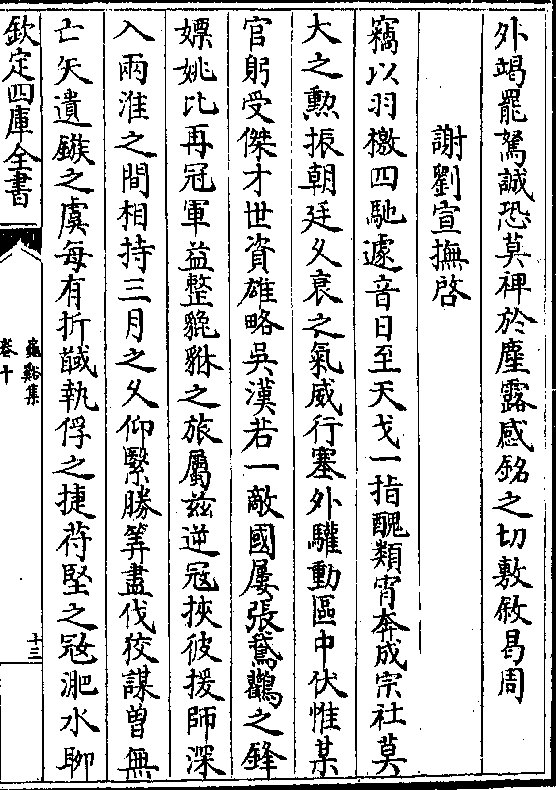 外竭罷駑誠恐莫裨於塵露感銘之切敷敘曷周
謝劉宣撫啓
竊以羽檄四馳遽音日至天戈一指醜類宵奔成宗社莫
大之勲振朝廷久衰之氣威行塞外驩動區中伏惟某
官躬受傑才世資雄略吳漢若一敵國屢張鵞鸛之鋒
嫖姚比再冠軍益整貔貅之旅屬兹逆寇挾彼援師深
入兩淮之間相持三月之久仰繄勝筭盡伐狡謀曽無
亡矢遺鏃之虞每有折馘執俘之捷苻堅之寇淝水聊
欽定四庫全書
龜谿集
卷十
十三